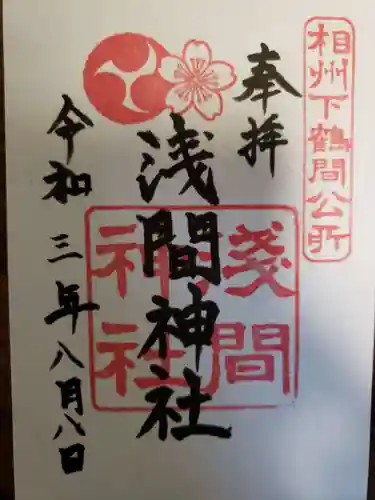 相州下鶴間公所
奉拝
浅間神社
淺間神社
令和三年八月八日